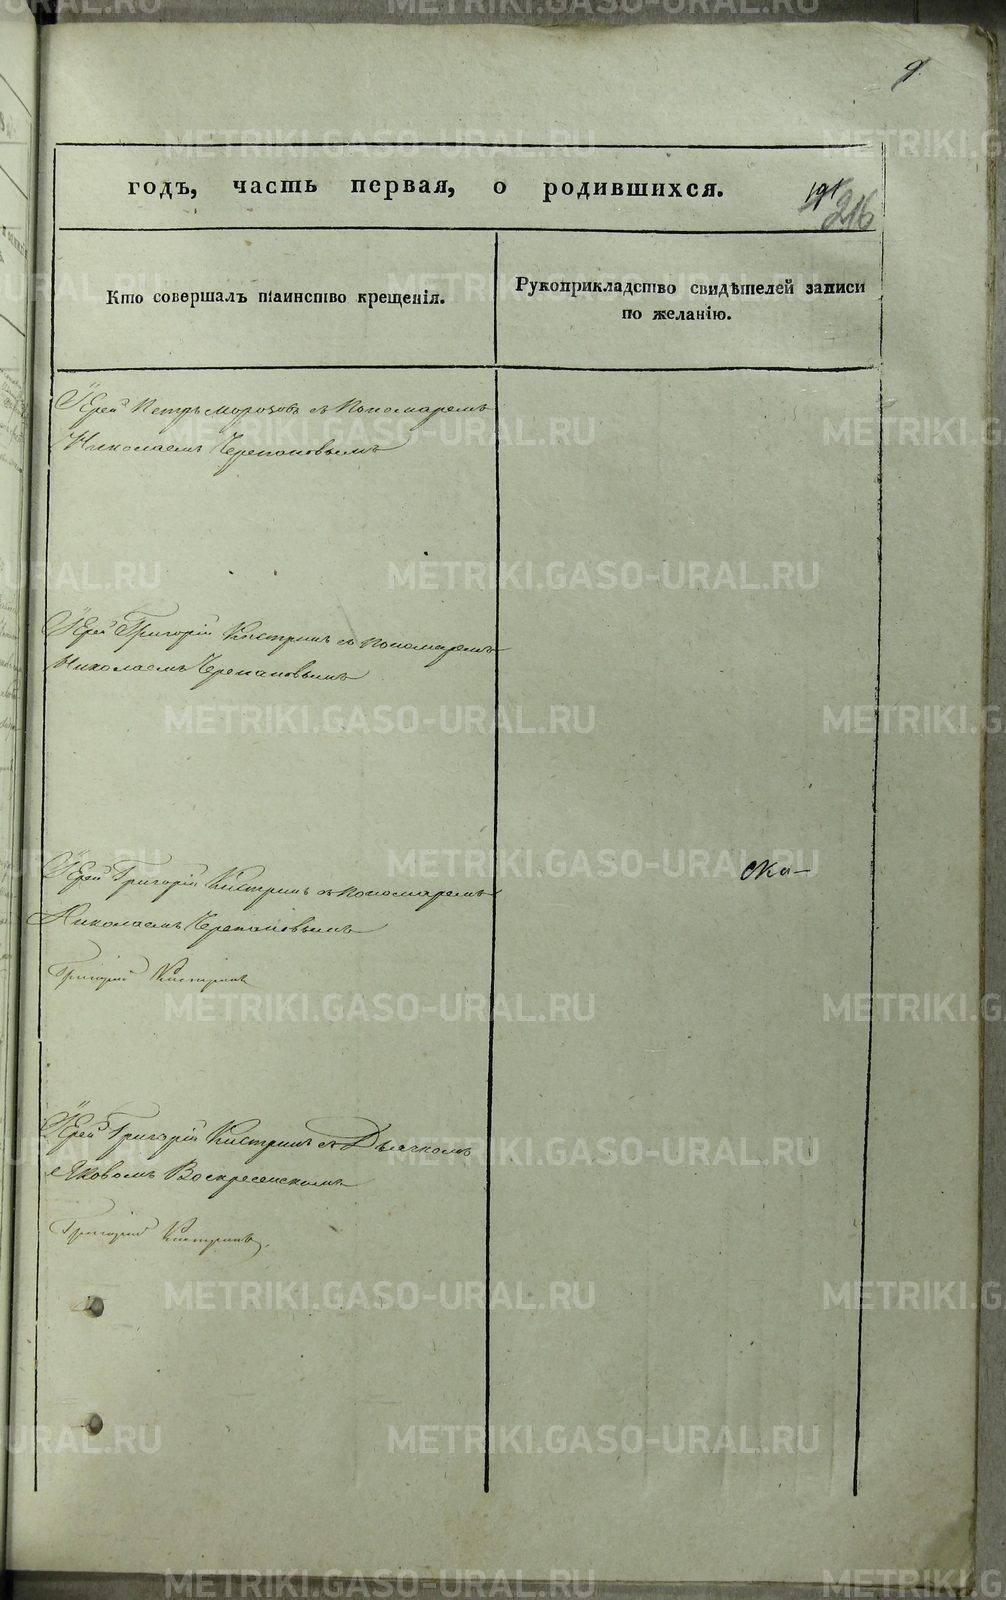 9.
годъ, часть первая, о родившихся.
191
216
Кто совершалъ таинство крещенія.
Рукоприкладство свидѣтелей записи
по желанію.
Іерей Петръ Морозовъ съ Пономаремъ
Николаемъ Черепановымъ
Іерей Григорій Кистринъ съ Пономаремъ
Николаемъ Черепановымъ
Іерей Григорій Кистринъ съ Пономаремъ
Николаемъ Черепановымъ
Григорій Кистринъ
Іерей Григорій Кистринъ съ Дьячкомъ
Яковомъ Воскресенскимъ
Григорій Кистринъ
ска-
METRIKI.GASO-URAL.RU